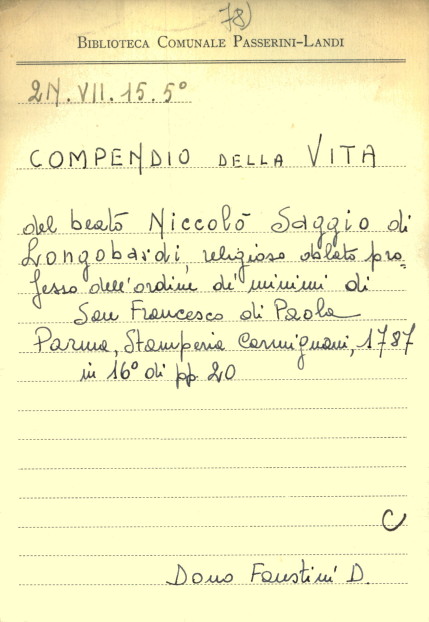 78)
BIBLIOTECA COMUNALE PASSERINI-LANDI
2N.VII.15.5°
COMPENDIO DELLA VITA
del beato Niccolò Saggio di
Longobardi, religioso oblato pro=
fesso dell'ordine de' minimi di
San Francesco di Paola
Parma, Stamperia Carmignani, 1787
in 16° di pp 20
C
Dono Faustini D.